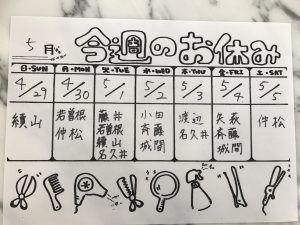 5月 今週のお休み
日・SUN 月・MON 火・TUE 水・WED 木・THU 金・FRI 土・SAT
4/29 4/30 5/1 5/2 5/3 5/4 5/5
續山 若曽根 藤井 小田 渡辺 矢萩 仲松
仲松 若曽根 斉藤 名久井 斉藤
續山 城間 城間
名久井